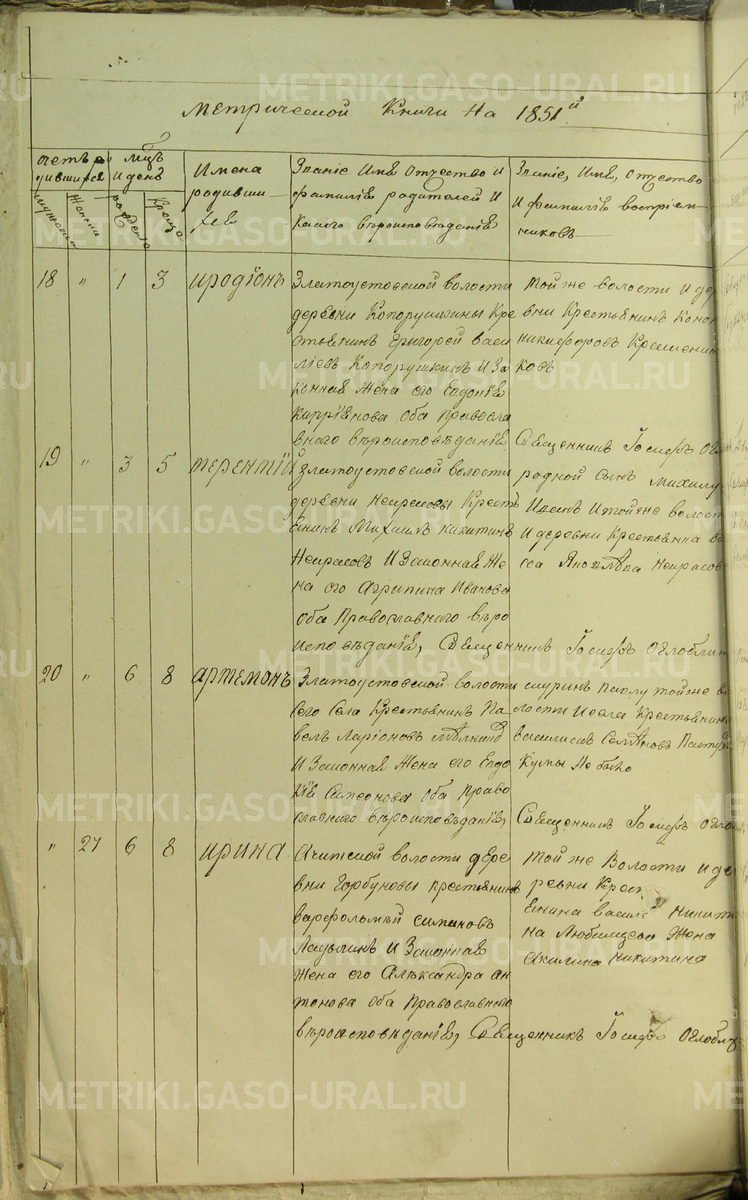 Метрической Книги На 1851й
Счетъ ро
дившихся
Мцъ
И день
Имена
родивши
хся
Званіе Имя Отчество И
фамилія родителей И
какого вѣроисповѣданія
Званіе, Имя, Отчество
И фамилія воспріем
никовъ
мужеска
женска
рожденія
Креще
18 " 1 3 Иродіонъ
Златоустовской волости
деревни Копорушкины Кре
стьянинъ Григорей Васи
ліевъ Копорушкинъ И За
конная Жена его Евдокія
Кипріянова Оба Правосла
внаго вѣроисповѣданія
Той же волости И де
вни Крестьянинъ Конон
никифоровъ Крашенин
ковъ
Священникъ Іосифъ Огл
19 " 3 5 Терентій
Златоустовской волости
деревни Некрасовы Кресть
янинъ Михаилъ Никитинъ
Некрасовъ И Законная Же
на его Агрипина Иванова
Оба Православнаго вѣро
исповѣданія, Священникъ Іосифъ Оглоблин
родной Сынъ Михаилу
Иванъ И той же волост
И деревни Крестьянка Ва
са Яковлѣва Некрасов
20 " 6 8 Артемонъ
Златоустовской волости
Сего Села Крестьянинъ Па
велъ Ларіоновъ
И Законная Жена его Евдо
кія Симеонова Оба Право
славнаго вѣроисповѣданія,
шуринъ Павлу той же во
лости И села Крестьянинъ
Василисъ Семѣновъ
Кумы Не было
Священникъ Іосифъ Огло
" 27 6 8 Ирина
Ачитской волости дере
вни Горбуновы Крестьянинъ
Варфоломѣй Симановъ
Ладылинъ И Законная
Жена его Алѣксандра Ан
тонова Оба Православнаго
вѣроисповѣданія, Священникъ Іосифъ Оглобл
Той же Волости И де
ревни Крест
янина Василія Никити
на Любимцева Жена
Акилина Никитина
METRIKI.GASO-URAL.RU